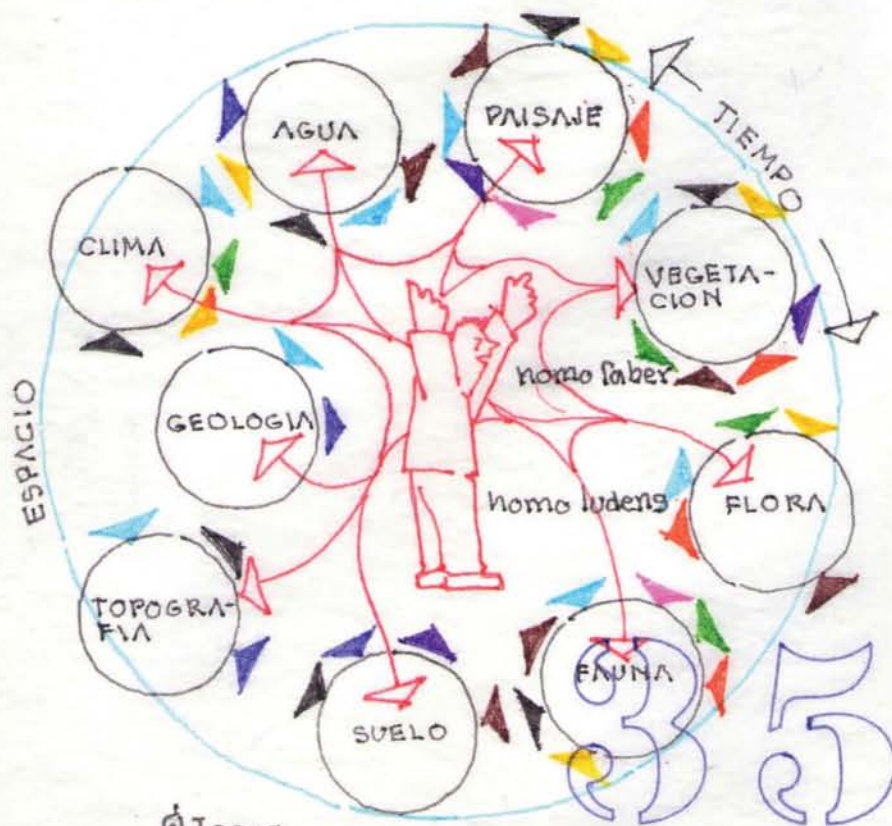 AGUA
PAISAJE
TIEMPO
CLIMA
VEGETA-
CION
homo faber
GEOLOGIA
ESPACIO
homo ludens
FLORA
TOPOGRA-
FIA
FAUNA
SUELO
35